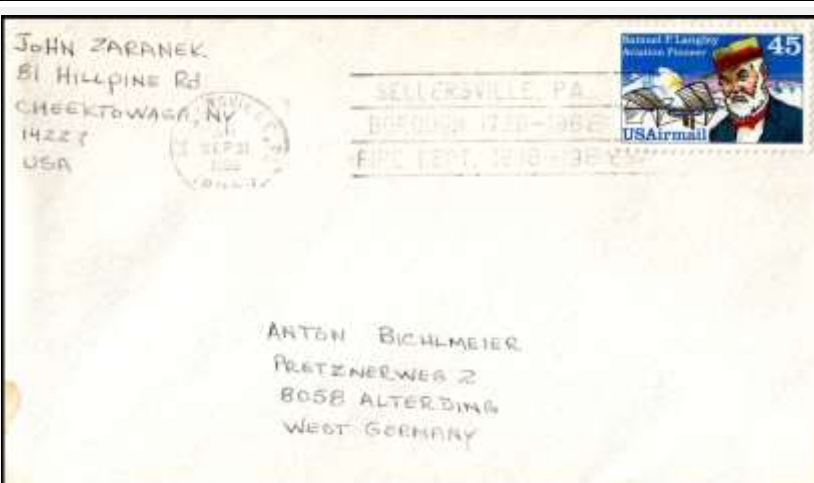 JOHN ZARANEK
81 HILLPINE Rd
CHEEKTOWAGA, NY
USA
SEP
SELLERSVILLE, PA.
BOROUGH
FIRE DEPT.
Samuel P. Langley
Aviation Pioneer
45
USAirmail
ANTON BICHLMEIER
PRETZNERWEG 2
8058 ALTERDING
WEST GERMANY